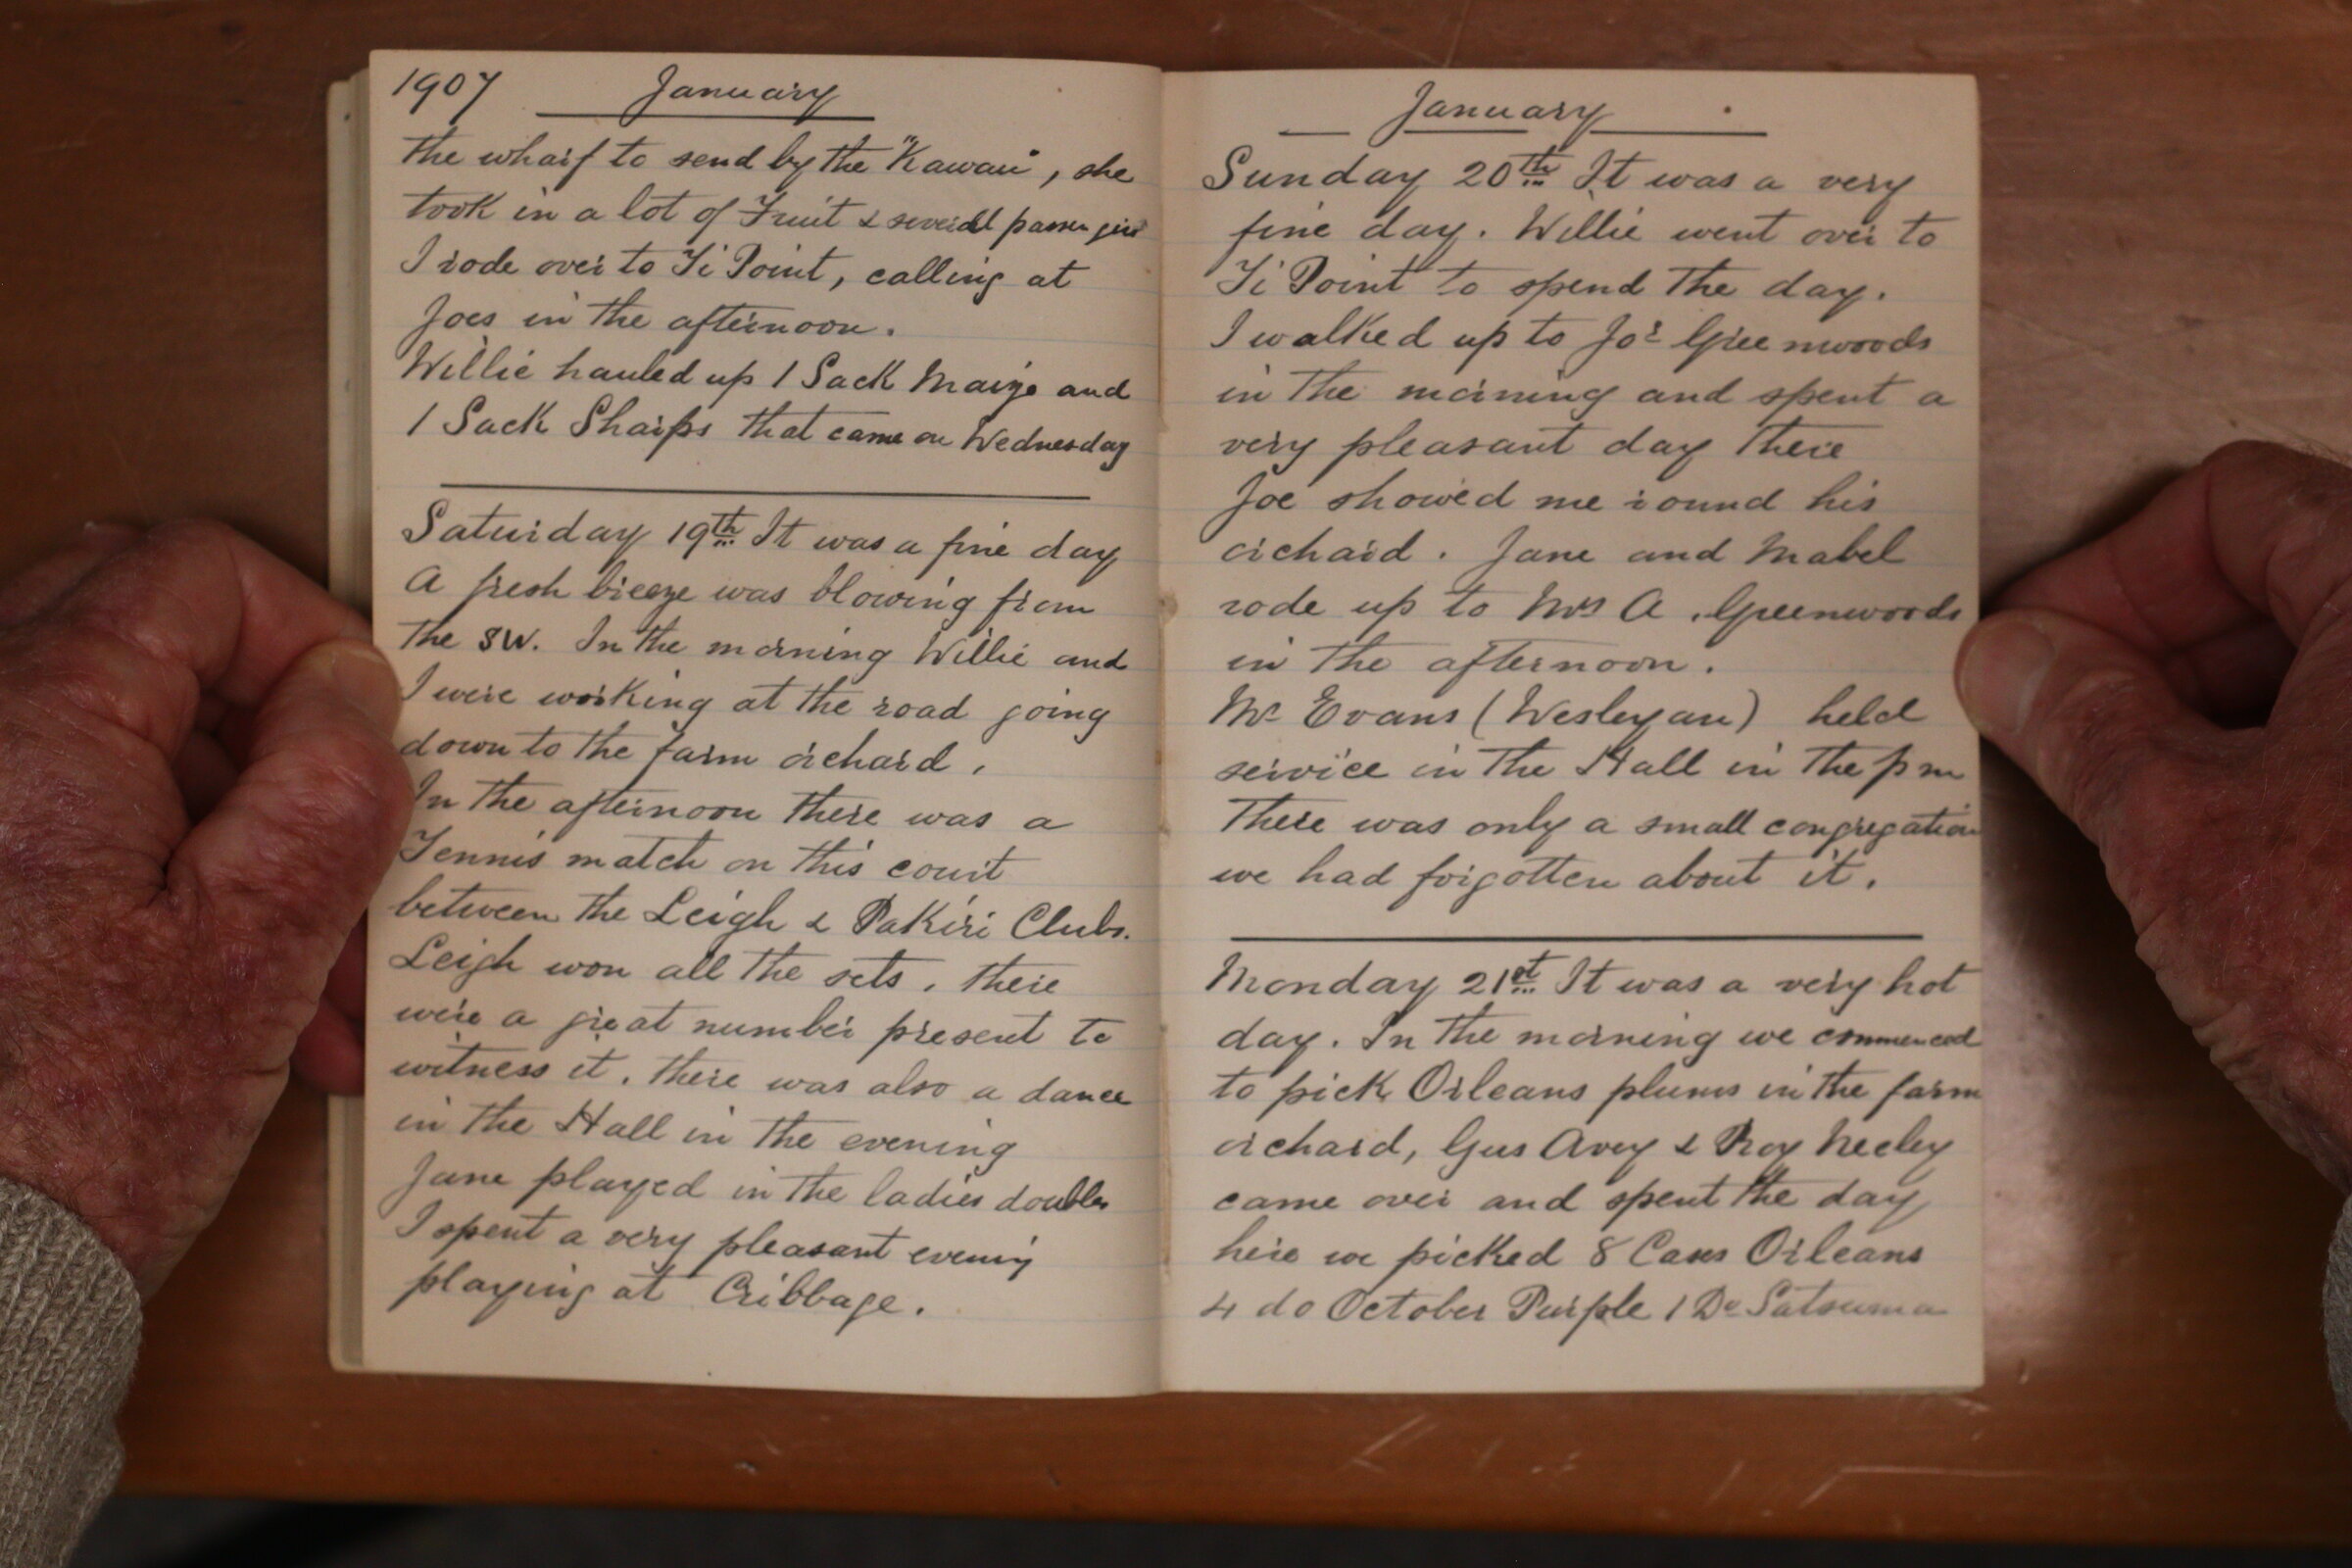 1907 January
the wharf to send by the "Kawau", she
took in a lot of Fruit & severall passengers
I rode over to Ti Point, calling at
Joes in the afternoon.
Willie hauled up 1 Sack Maize and
1 Sack Sharps that came on Wednesday
Saturday 19th It was a fine day
A fresh breeze was blowing from
the SW. In the morning Willie and
I were working at the road going
down to the farm orchard.
In the afternoon there was a
Tennis match on this court
between the Leigh & Pakiri Clubs.
Leigh won all the sets, there
were a great number present to
witness it. there was also a dance
in the Hall in the evening
Jane played in the ladies doubles
I spent a very pleasant evening
playing at Cribbage.
January
Sunday 20th It was a very
fine day. Willie went over to
Ti Point to spend the day.
I walked up to Jos Greenwoods
in the morning and spent a
very pleasant day there
Joe showed me round his
orchard. Jane and Mabel
rode up to Mrs A. Greenwoods
in the afternoon.
Mr Evans (Wesleyan) held
service in the Hall in the pm
there was only a small congregation
we had forgotten about it.
Monday 21st It was a very hot
day. In the morning we commenced
to pick Orleans plums in the farm
orchard, Gus Avey & Roy Neeley
came over and spent the day
here we picked 8 Cases Orleans
4 do October Purple 1 Do Satsuma